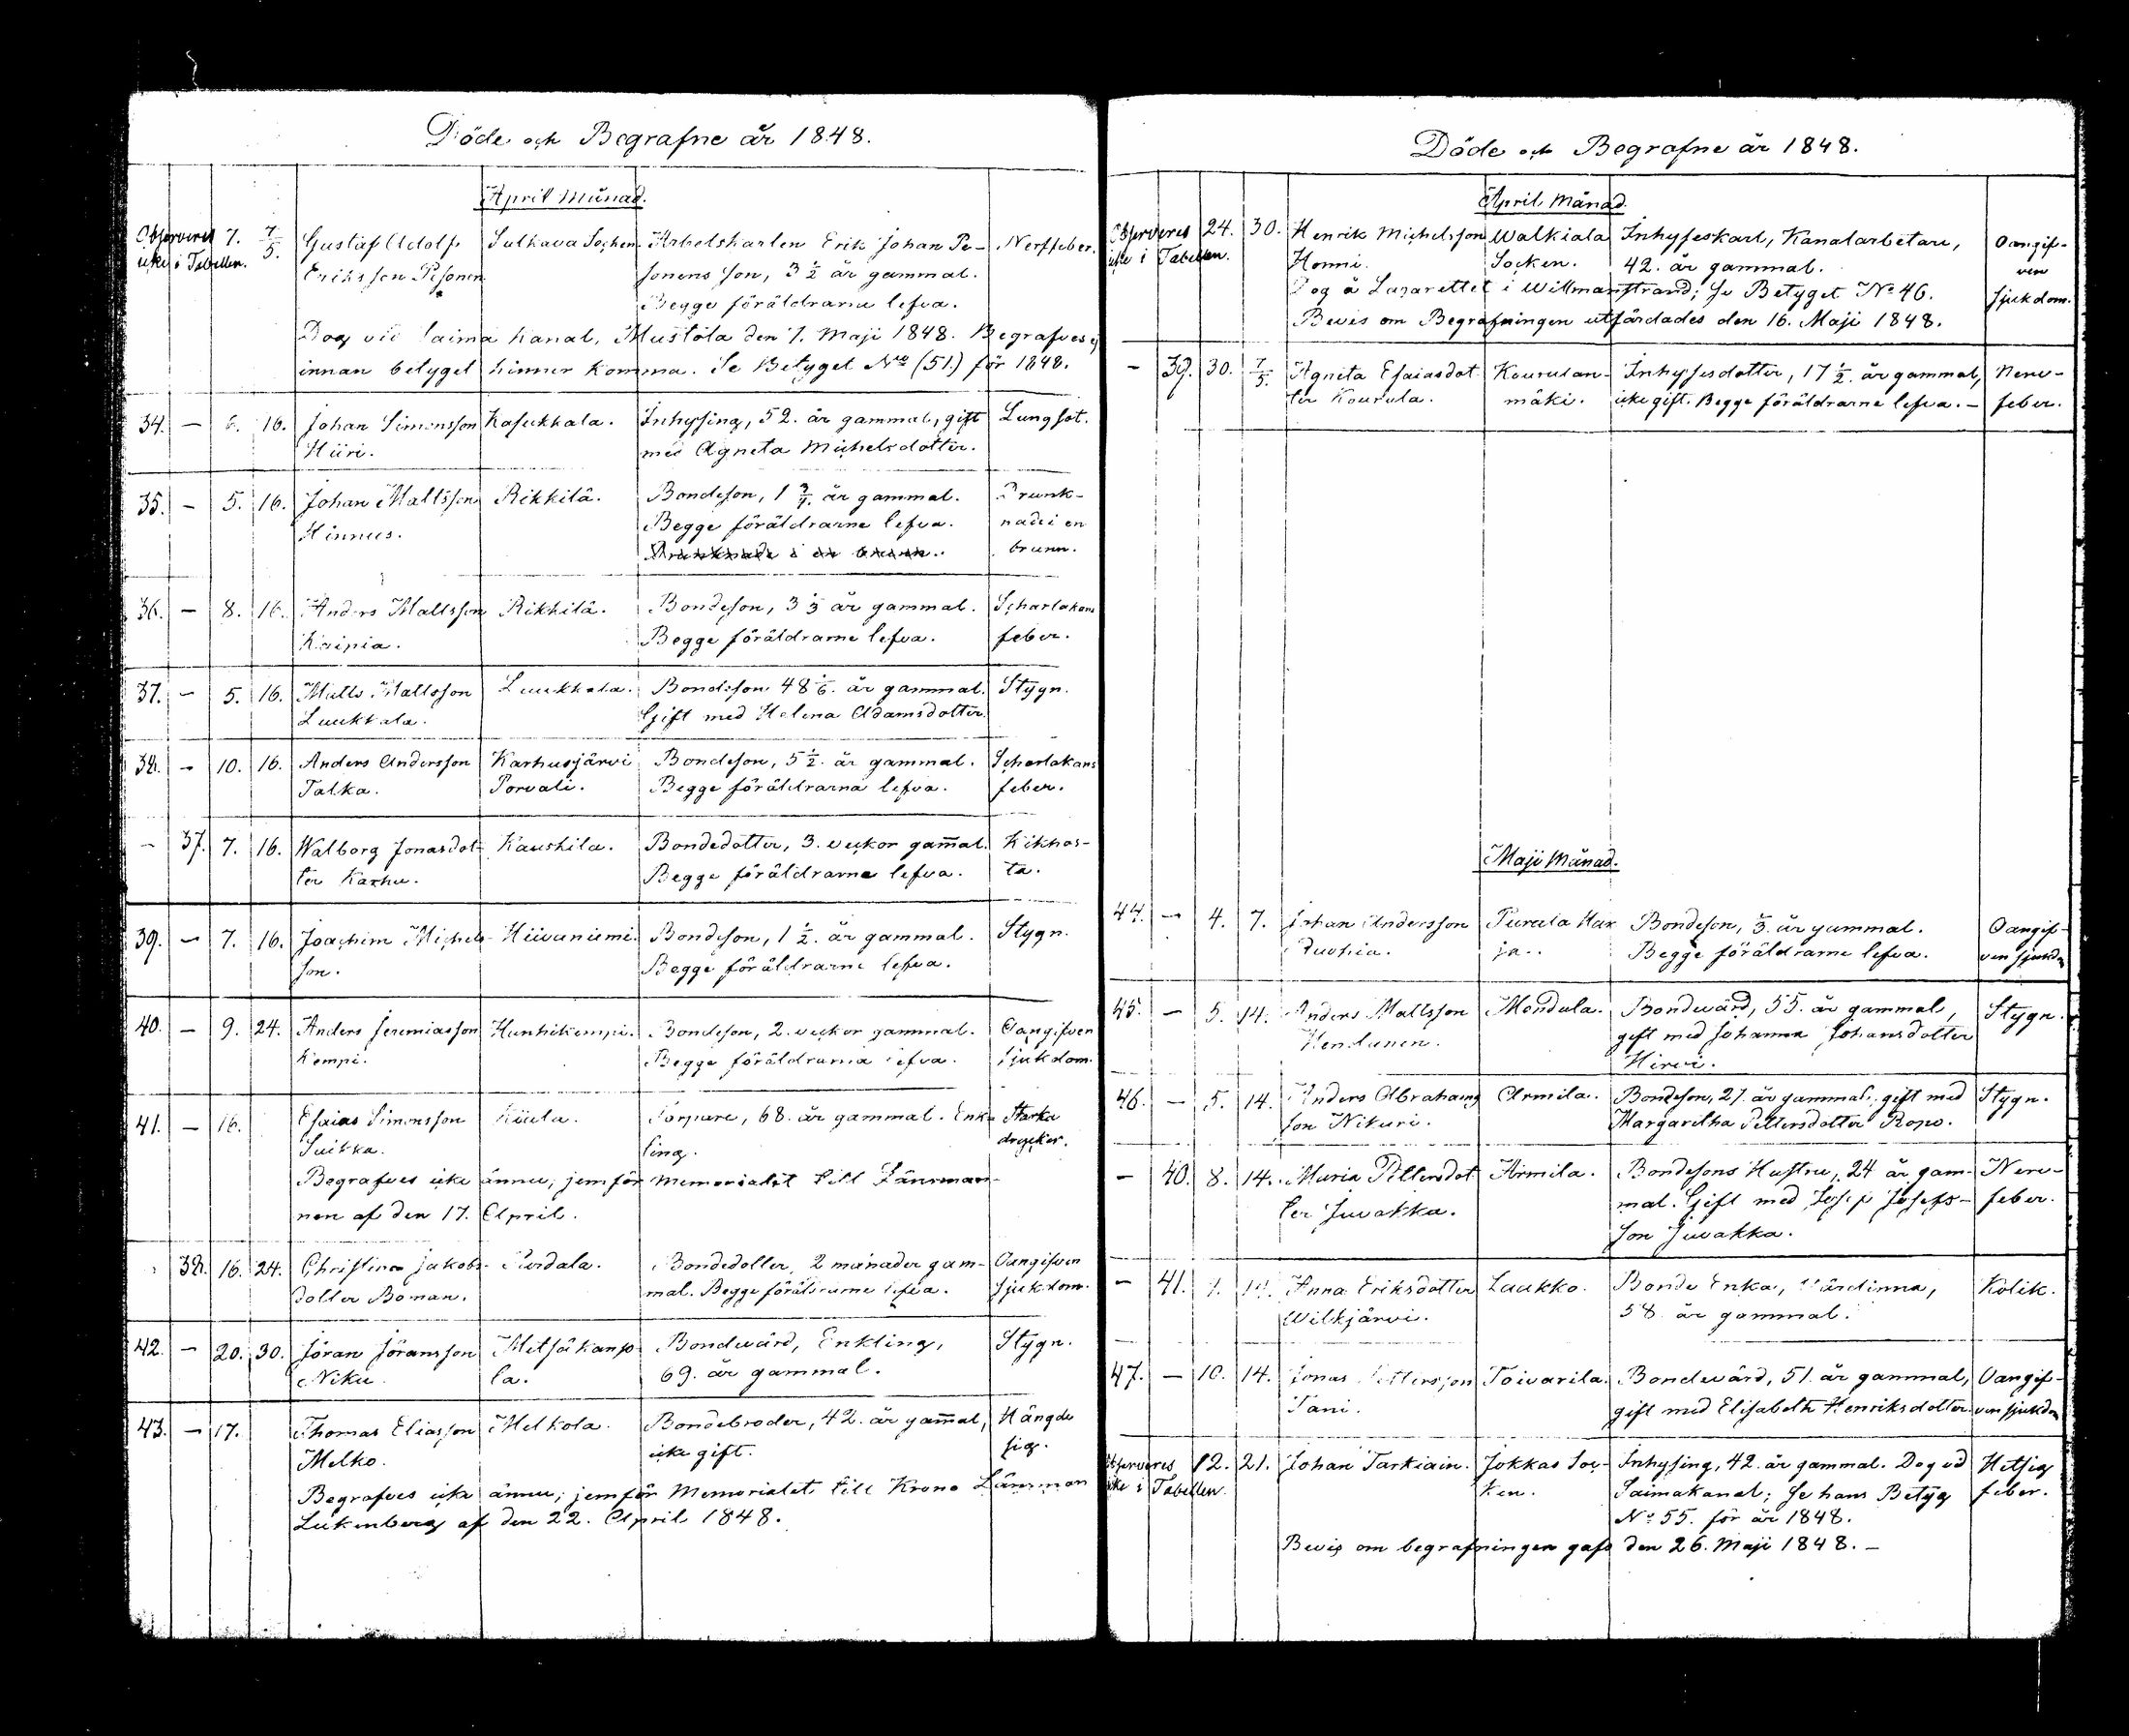 Döde och Begrafne år 1848.
April Månad.
Observeras 7. 7/5. Gustaf Adolf Sulkava Socken Arbetskarlen Erik Johan Pe- Nerffeber.
icke i Tabellen. Eriksson Pesonen sonens son, 3 1/2 år gammal.
Begge föräldrarne lefva.
Dog vid Saima Kanal, Mustola den 7. Maji 1848. Begrafves ej
innan betyget hinner komma. Se Betyget No (51.) för 1848.
34. - 6. 16. Johan Simonsson Kasukkala. Inhysing, 52. år gammal, gift Lungsot.
Hiiri. med Agneta Michelsdotter.
35. - 5. 16. Johan Mattsson Rikkilä. Bondeson, 1 3/4 år gammal. Drunk-
Hinnus. Begge föräldrarne lefva. nade i en
Drunknade i en brunn. brunn.
36. - 8. 16. Anders Mattsson Rikkilä. Bondeson, 3 1/3 år gammal. Scharlakans
Kaipia. Begge föräldrarne lefva. feber.
37. - 5. 16. Matts Mattsson Luukkala. Bondeson 48 1/6. år gammal. Stygn.
Luukkala. Gift med Helena Adamsdotter.
38. - 10. 16. Anders Andersson Karhusjärvi Bondeson, 5 1/2. år gammal. Scharlakans
Talka. Porvali. Begge föräldrarna lefva. feber.
- 37. 7. 16. Walborg Jonasdot- Kauskila. Bondedotter, 3. veckor gam̄al. Kikhos-
ter Karhu. Begge föräldrarne lefva. ta.
39. - 7. 16. Joachim Michels- Hiivaniemi. Bondeson, 1 1/2. år gammal. Stygn.
son. Begge föräldrarne lefva.
40. - 9. 24. Anders Jeremiasson Hanhikempi. Bondeson, 2. veckor gammal. Oangifven
Kempi. Begge föräldrarna lefva. sjukdom.
41. - 16. Esaias Simonsson Kiiela. Torpare, 68. år gammal. Enk- Starka
Suikka. ling. drycker.
Begrafves icke ännu; jemför memorialet till Länsman-
nen af den 17. April.
38. 16. 24. Christina Jakobs- Purdala. Bondedotter, 2 månader gam- Oangifven
dotter Boman. mal. Begge föräldrarne lefva. sjukdom.
42. - 20. 30. Jöran Jöransson Metsäkanso Bondevärd, Enkling, Stygn.
Niku. la. 69. år gammal.
43. - 17. Thomas Eliasson Melkola. Bondebroder, 42. år gam̄al, Hängde
Melko. icke gift. sig.
Begrafves icke ännu; jemför Memorialet till Krono Länsman
Lukenberg af den 22. April 1848.
Döde och Begrafne år 1848.
April Månad.
Observeras 24. 30. Henrik Michelsson Walkiala Inhyseskarl, Kanalarbetare, Oangif-
icke i Tabellen. Honni. Socken. 42. år gammal. ven
Dog å Lazarettet i Willmanstrand; se Betyget No 46. sjukdom.
Bevis om Begrafningen utfärdades den 16. Maji 1848.
- 39. 30. 7/5. Agneta Esaiasdot Kourulan- Inhysesdotter, 17 1/2. år gammal, Nerv-
ter Kourula. mäki. icke gift. Begge föräldrarne lefva. - feber.
Maji Månad.
44. - 4. 7. Johan Andersson Purala Har Bondeson, år gammal. Oangif-
ja. Begge föräldrarne lefva. ven sjukdm
45. - 5. 14. Anders Mattsson Mondula. Bondevärd, 55. år gammal, Stygn.
gift med Johanna Johansdotter
Hirvi.
46. - 5. 14. Anders Abrahams Armila. Bondeson, 27. år gammal. gift med Stygn.
son Nikuri. Margaritha Pettersdotter Ropo.
- 40. 8. 14. Maria Pettersdot Armila. Bondesons Hustru, 24 år gam- Nerv-
ter Juvakka. mal. Gift med Josep Josefs- feber.
son Juvakka.
- 41. 7. 14. Anna Eriksdotter Laukko. Bonde Enka, Värdinna, Kolik.
Wilkjärvi. 58 år gammal.
47. - 10. 14. Jonas Pettersson Toivarila. Bondevärd, 51. år gammal, Oangif-
Tani. gift med Elisabeth Henriksdotter. ven sjukdm
Observeras 12. 21. Johan Tarkiain. Jokkas Soc- Inhysing, 42. år gammal. Dog vid Hetsig
icke i Tabellen. ken. Saimakanal; Se hans Betyg feber.
No 55. för år 1848.
Bevis om begrafningen gafs den 26. Maji 1848. -